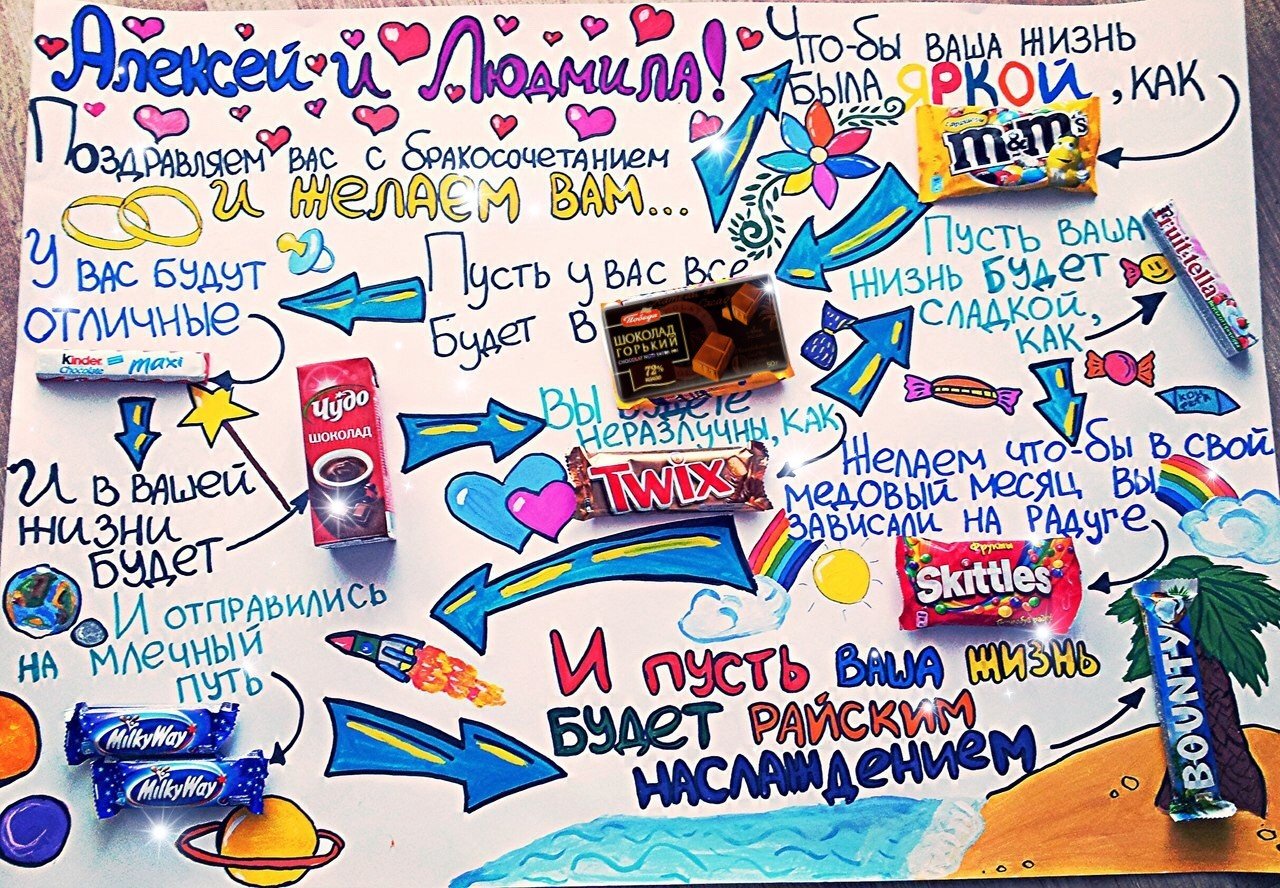 Алексей и Людмила!
Поздравляем вас с бракосочетанием
и желаем вам...
Что-бы ваша жизнь
была яркой, как
m&m's
Пусть у вас все
будет в
Победа
ШОКОЛАД
ГОРЬКИЙ
72%
У вас будут
отличные
kinder
Chocolate
maxi
И в вашей
жизни
будет
Чудо
ШОКОЛАД
Вы будете
неразлучны, как
TWIX
Пусть ваша
жизнь будет
сладкой,
как
Fruittella
Желаем что-бы в свой
медовый месяц вы
зависали на радуге
Фрукты
Skittles
И отправились
на млечный
путь
MilkyWay
MilkyWay
И пусть ваша жизнь
будет райским
наслаждением
BOUNTY